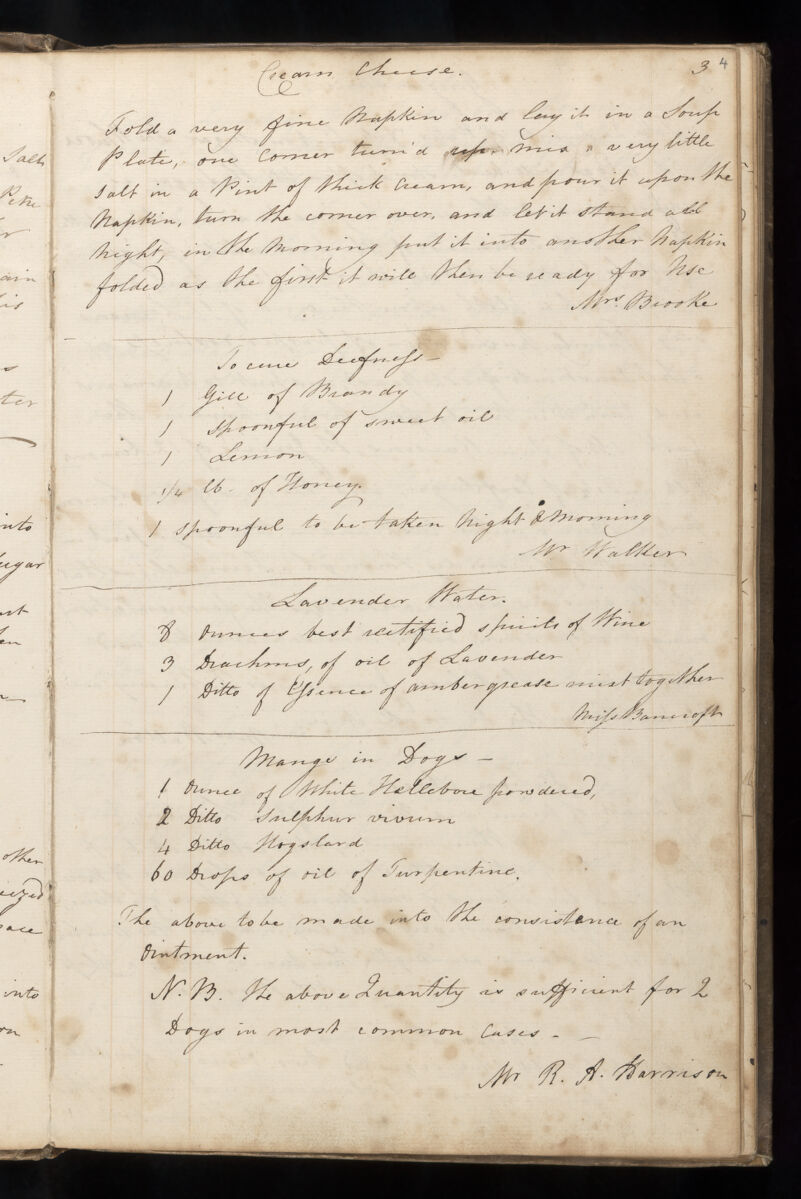 Salt
Pete
ain
his
ter
into
sugar
other
into
3 4
Cream Cheese.
Fold a very fine Napkin and lay it in a Soup
Plate, one corner turn'd up. mix a very little
salt in a Pint of thick Cream, and pour it upon the
Napkin, turn the corner over, and let it stand all
Night, in the Morning put it into another Napkin
folded as the first it will then be ready for Use
Mrs. Brooke
To cure Deefness—
1 Gill of Brandy
1 spoonful of sweet oil
1 Lemon
1/4 lb. of Honey.
1 spoonful to be taken Night & Morning
Mr Walker
Lavender Water.
8 ounces best rectified spirits of Wine
3 Drachms, of oil of Lavender
1 Ditto of Essence of ambergrease mixt together
Miss Bancroft
Mange in Dogs—
1 Ounce of White Hellebore powdered,
2 Ditto Sulphur vivum
4 Ditto Hogslard
60 Drops of oil of Turpentine.
The above to be made into the consistance of an
Ointment.
N.B. the above Quantity is sufficient for 2
Dogs in most common Cases - —
Mr R. A. Harrison